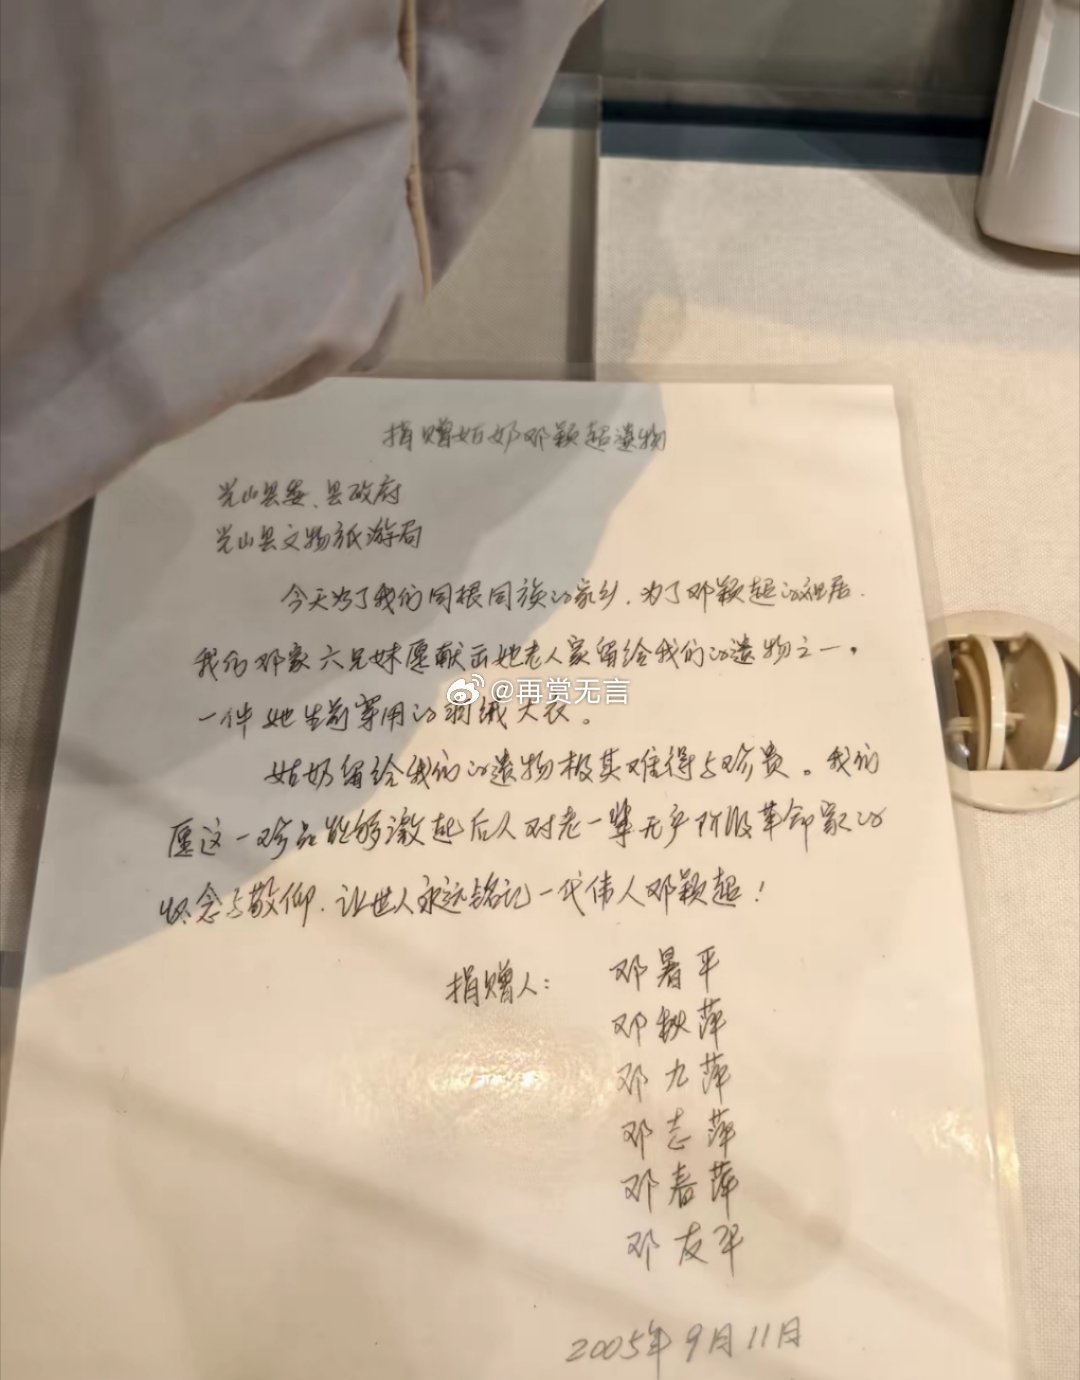 捐赠姑奶邓颖超遗物
光山县委、县政府
光山县文物旅游局
今天为了我们同根同族的家乡，为了邓颖超的祖居，
我们邓家六兄妹愿献出她老人家留给我们的遗物之一。
@再赏无言
一件她生前穿用的羽绒大衣。
姑奶留给我们的遗物极其难得与珍贵。我们
愿这一珍品能够激起后人对老一辈无产阶级革命家的
怀念与敬仰，让世人永远铭记一代伟人邓颖超！
捐赠人：邓暑平
邓秋萍
邓九萍
邓志萍
邓春萍
邓友平
2005年9月11日